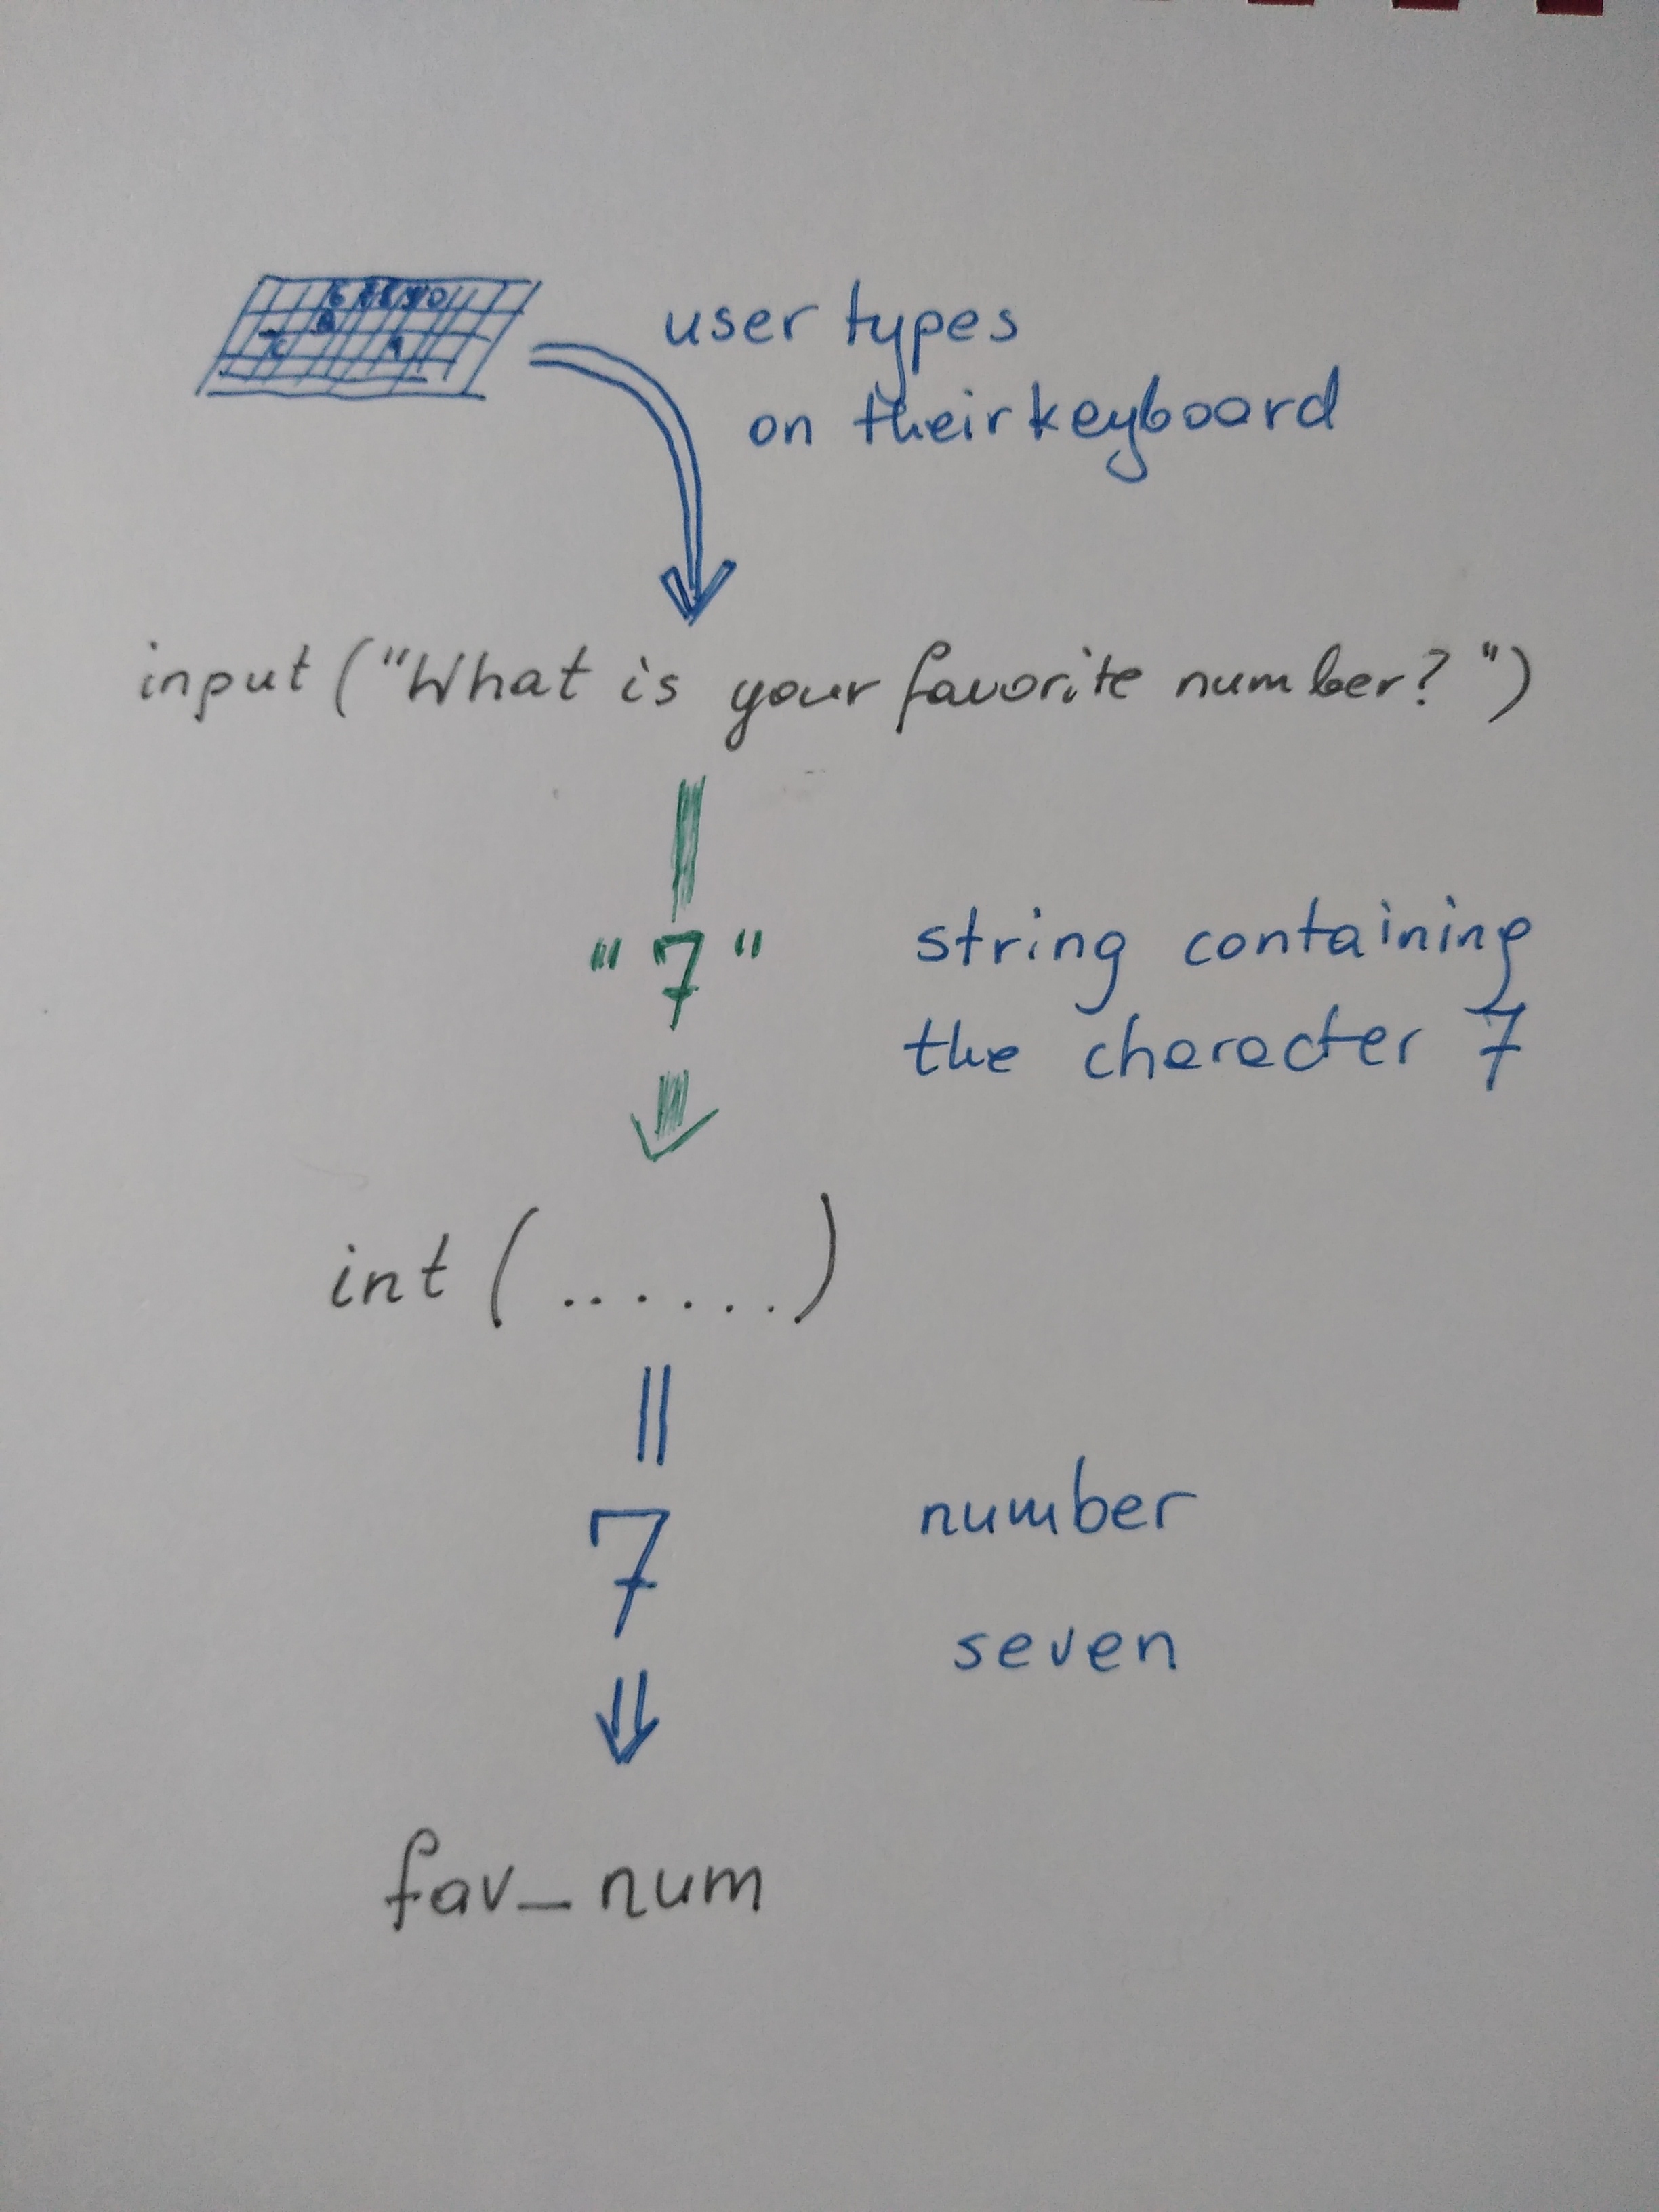 user types
on their keyboard
input ("What is your favorite number?")
"7"
string containing
the character 7
int (.......)
7
number
seven
fav_num